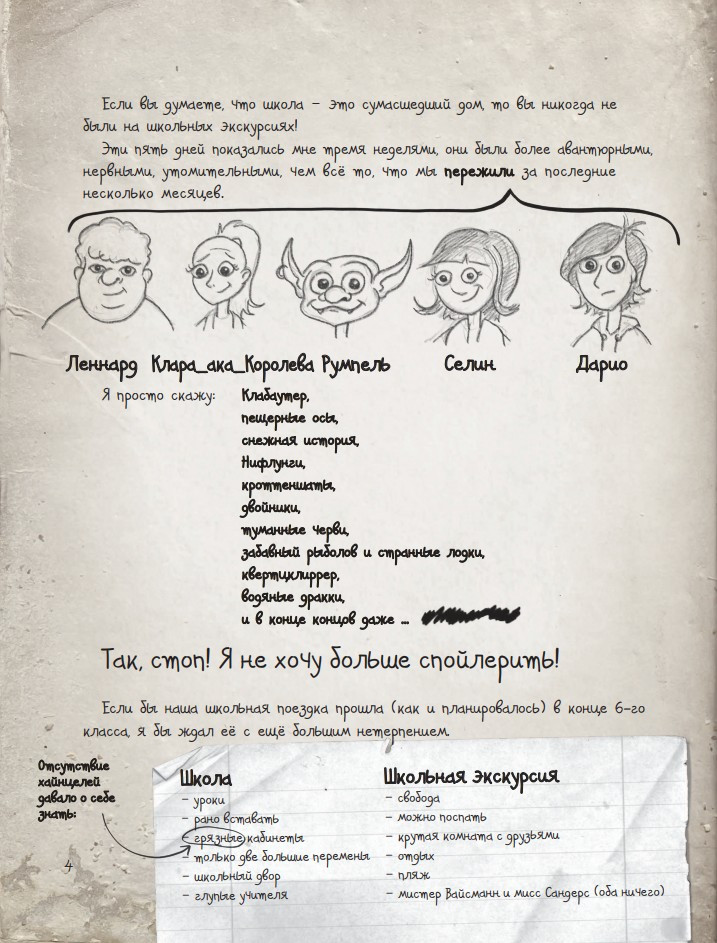 Если вы думаете, что школа – это сумасшедший дом, то вы никогда не
были на школьных экскурсиях!
Эти пять дней показались мне тремя неделями, они были более авантюрными,
нервными, утомительными, чем всё то, что мы пережили за последние
несколько месяцев.
Леннард Клара_ака_Королева Румпель Селин Дарио
Я просто скажу: Клабаутер,
пещерные осы,
снежная история,
Нифлунги,
кроттеншаты,
двойники,
туманные черви,
забавный рыболов и странные лодки,
квертиклиррер,
водяные дракки,
и в конце концов даже ...
Так, стоп! Я не хочу больше спойлерить!
Если бы наша школьная поездка прошла (как и планировалось) в конце 6-го
класса, я бы ждал её с ещё большим нетерпением.
Отсутствие
хайнцелей
давало о себе
знать:
Школа
– уроки
– рано вставать
– грязные кабинеты
– только две большие перемены
– школьный двор
– глупые учителя
Школьная экскурсия
– свобода
– можно поспать
– крутая комната с друзьями
– отдых
– пляж
– мистер Вайсманн и мисс Сандерс (оба ничего)
4